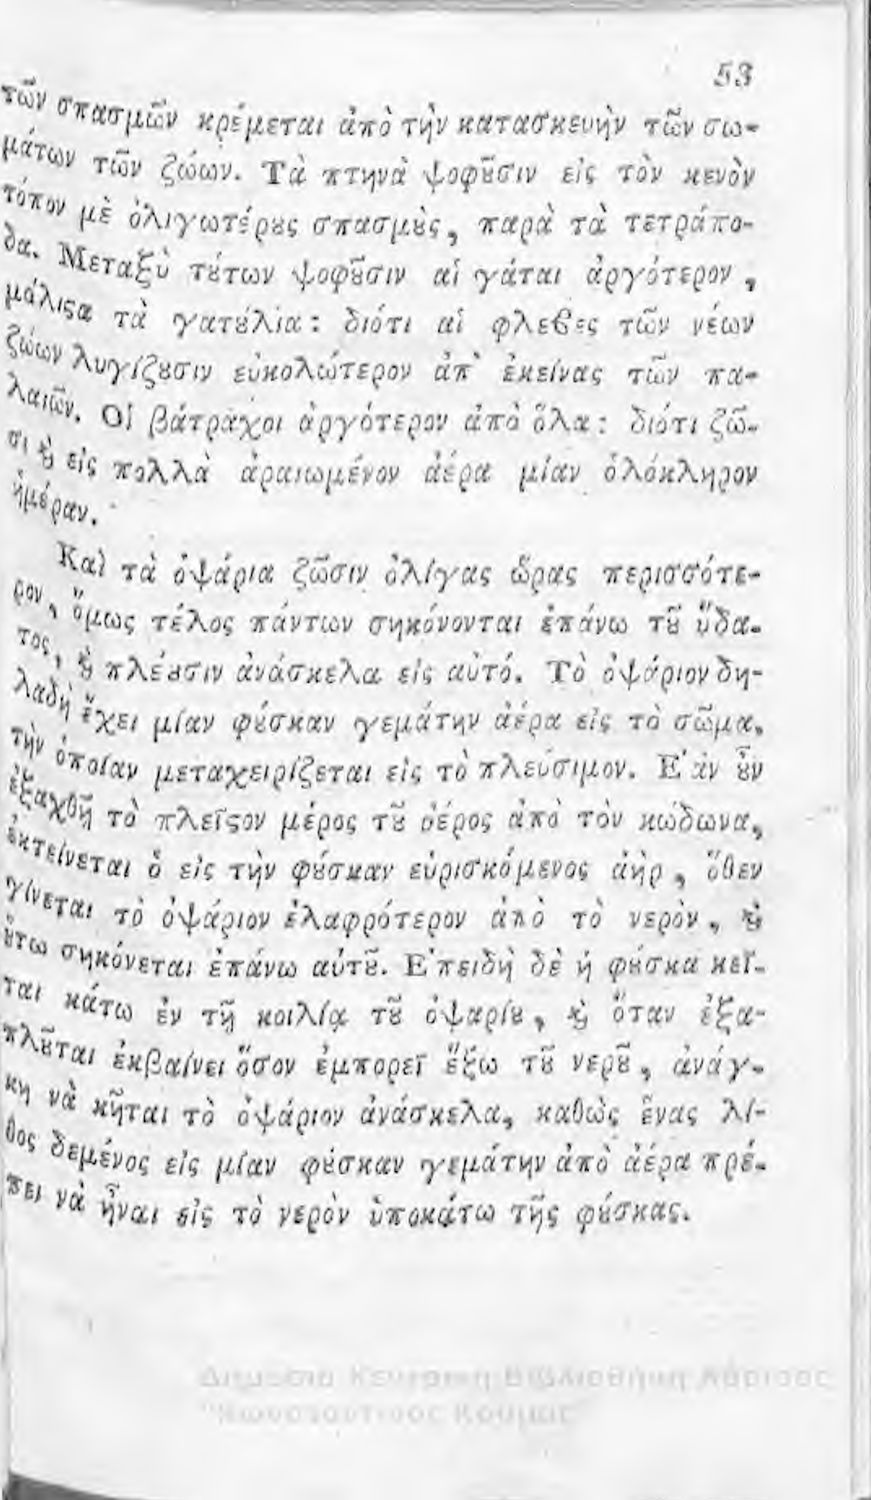 53
τῶν σπασμῶν κρέμεται ἀπὸ τὴν κατασκευὴν τῶν σω-
μάτων τῶν ζώων. Τὰ πτηνὰ ψοφȣ͂σιν εἰς τὸν κενὸν
τόπον μὲ ὀλιγωτέρȣς σπασμȣ̀ς, παρὰ τὰ τετράπο-
δα. Μεταξὺ τȣ́των ψοφȣ͂σιν αἱ γάται ἀργότερον,
μάλιϛα τὰ γατȣ́λια: διότι αἱ φλέϐες τῶν νέων
ζώων λυγίζȣσιν εὐκολώτερον ἀπ' ἐκείνας τῶν πα-
λαιῶν. Οἱ βάτραχοι ἀργότερον ἀπὸ ὅλα: διότι ζῶ-
σι ϗ̀ εἰς πολλὰ ἀραιωμένον ἀέρα μίαν ὁλόκληρον
ἡμέραν.
Καὶ τὰ ὀψάρια ζῶσιν ὀλίγας ὥρας περισσότε-
ρον, ὅμως τέλος πάντων σηκόνονται ἐπάνω τȣ͂ ὕδα-
τος, ϗ̀ πλέȣσιν ἀνάσκελα εἰς αὐτό. Τὸ ὀψάριον δη-
λαδὴ ἔχει μίαν φȣ́σκαν γεμάτην ἀέρα εἰς τὸ σῶμα,
τὴν ὁποίαν μεταχειρίζεται εἰς τὸ πλεύσιμον. Ε᾿ὰν ȣ̓͂ν
ἐξαχθῇ τὸ πλεῖϛον μέρος τȣ͂ ἀέρος ἀπὸ τὸν κώδωνα,
ἐκτείνεται ὁ εἰς τὴν φȣ́σκαν εὑρισκόμενος ἀὴρ, ὅθεν
γίνεται τὸ ὀψάριον ἐλαφρότερον ἀπὸ τὸ νερὸν, ϗ̀
ȣ̔́τω σηκόνεται ἐπάνω αὐτȣ͂. Ε᾿πειδὴ δὲ ἡ φȣ́σκα κεῖ-
ται κάτω ἐν τῇ κοιλίᾳ τȣ͂ ὀψαρίȣ, ϗ̀ ὅταν ἐξα-
πλȣ͂ται ἐκβαίνει ὅσον ἐμπορεῖ ἔξω τȣ͂ νερȣ͂, ἀνάγ-
κη νὰ κῆται τὸ ὀψάριον ἀνάσκελα, καθὼς ἕνας λί-
θος δεμένος εἰς μίαν φȣ́σκαν γεμάτην ἀπὸ ἀέρα πρέ-
πει νὰ ἦναι εἰς τὸ νερὸν ὑποκάτω τῆς φȣ́σκας.
Δημόσια Κεντρική Βιβλιοθήκη Λάρισας
"Κωνσταντίνος Κούμας"